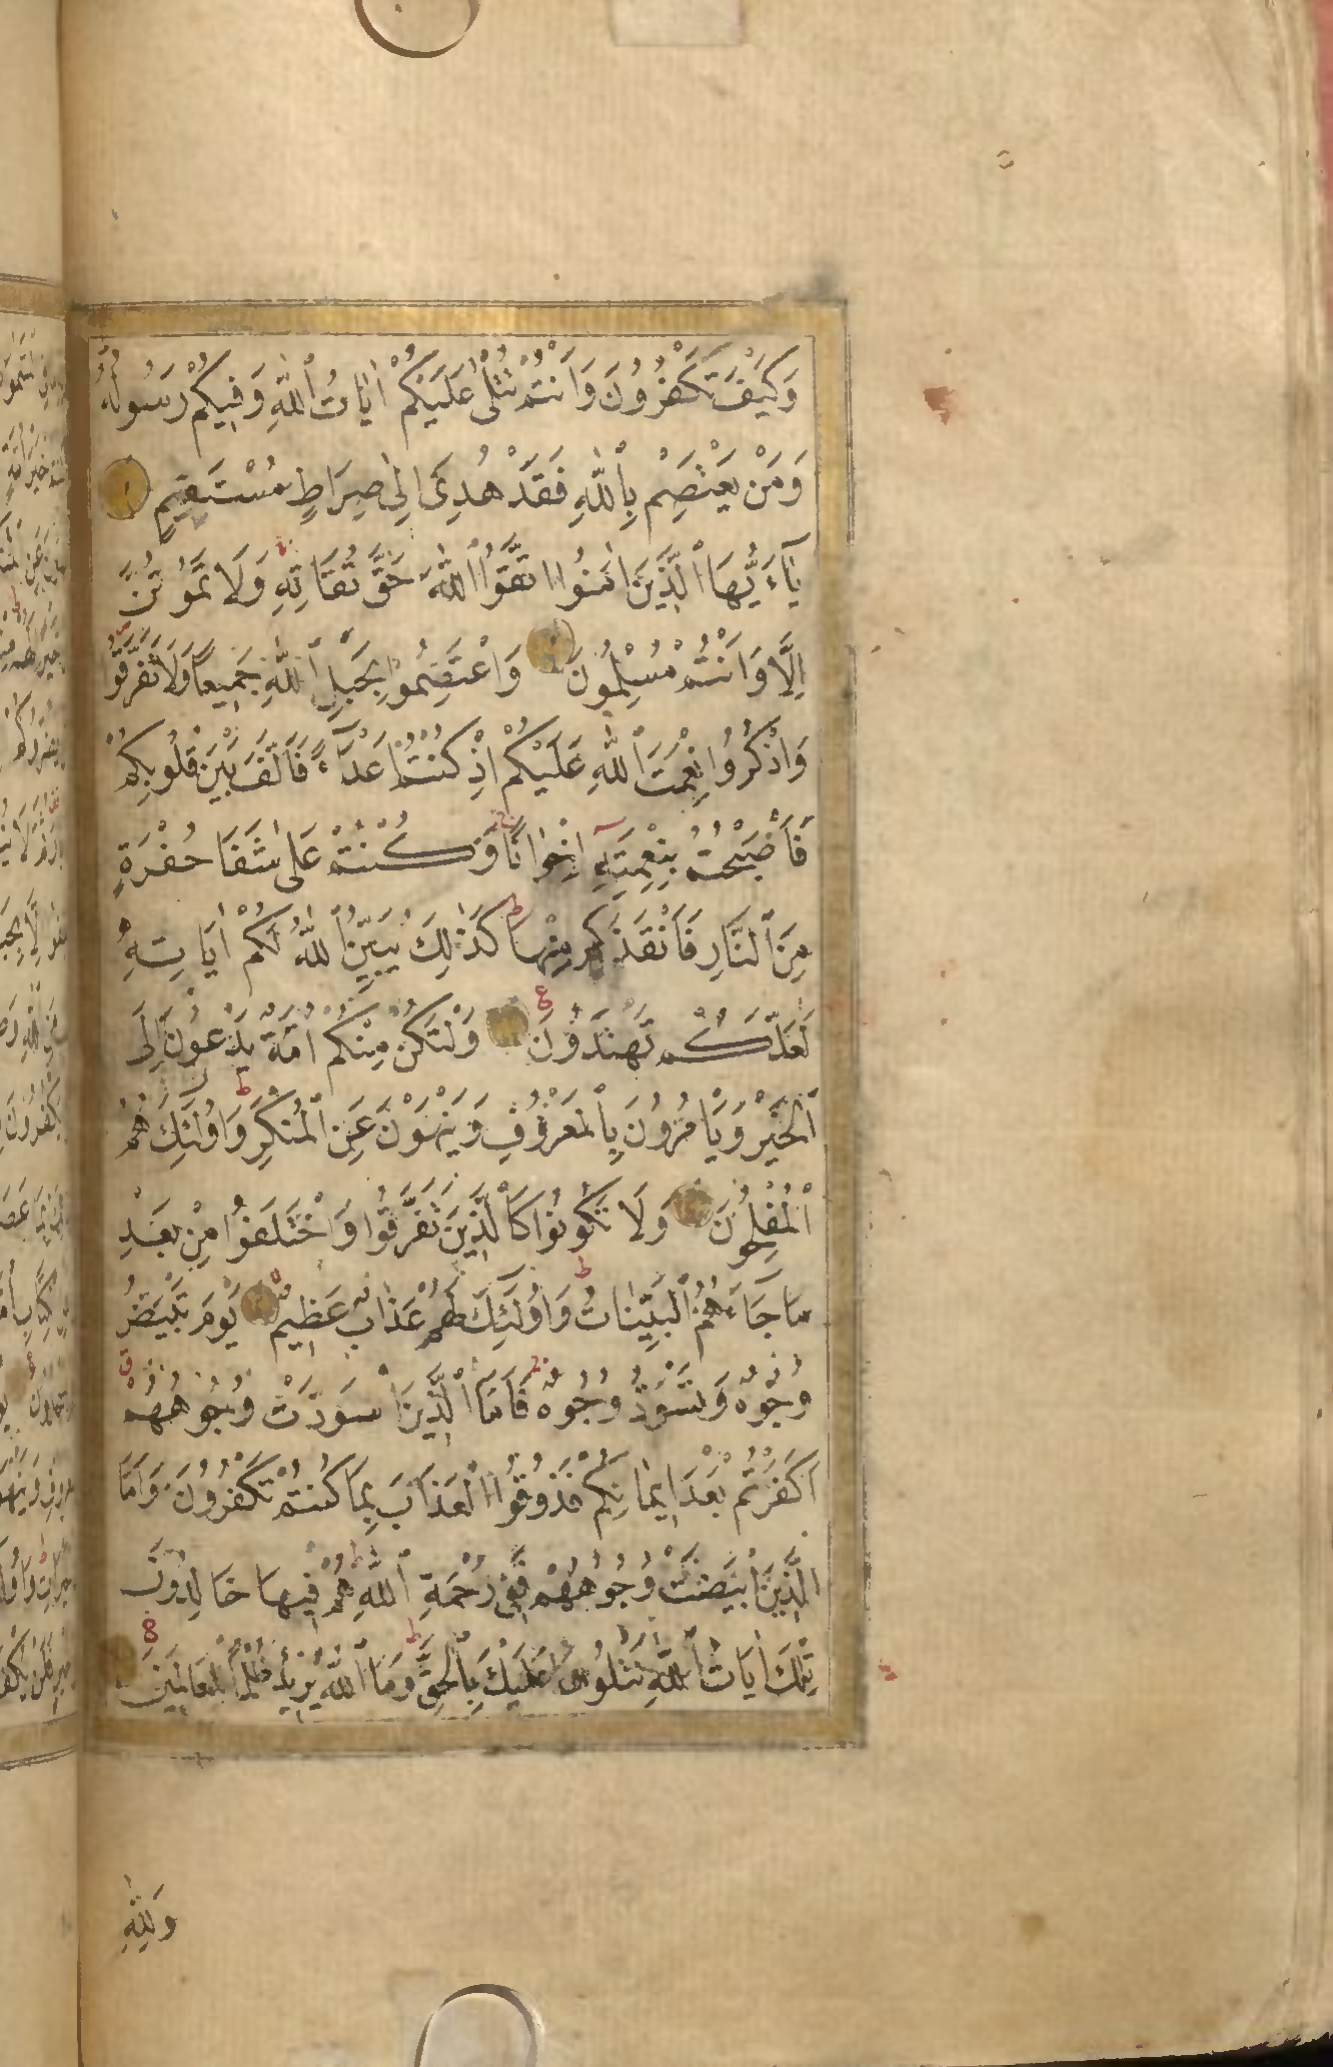 وَكَيْفَ تَكْفُرُونَ وَاَنْتُمْ تُتْلٰى عَلَيْكُمْ اٰيَاتُ ٱللّٰهِ وَفِيكُمْ رَسُولُهُ
وَمَنْ يَعْتَصِمْ بِٱللّٰهِ فَقَدْ هُدِىَ اِلٰى صِرَاطٍ مُسْتَقِيمٍ
يَآءَيُّهَا ٱلَّذِينَ اٰمَنُوا اتَّقُوا ٱللّٰهَ حَقَّ تُقَاتِهِ وَلَا تَمُوتُنَّ
اِلَّا وَاَنْتُمْ مُسْلِمُونَ وَاعْتَصِمُوا بِحَبْلِ ٱللّٰهِ جَمِيعاً وَلَا تَفَرَّقُوا
وَاذْكُرُوا نِعْمَتَ ٱللّٰهِ عَلَيْكُمْ اِذْ كُنْتُمْ اَعْدَآءً فَاَلَّفَ بَيْنَ قُلُوبِكُمْ
فَاَصْبَحْتُمْ بِنِعْمَتِهِ اِخْوَانًا وَكُنْتُمْ عَلٰى شَفَا حُفْرَةٍ
مِنَ ٱلنَّارِ فَاَنْقَذَكُمْ مِنْهَا كَذٰلِكَ يُبَيِّنُ ٱللّٰهُ لَكُمْ اٰيَاتِهِ
لَعَلَّكُمْ تَهْتَدُونَ وَلْتَكُنْ مِنْكُمْ اُمَّةٌ يَدْعُونَ اِلَى
ٱلْخَيْرِ وَيَأْمُرُونَ بِٱلْمَعْرُوفِ وَيَنْهَوْنَ عَنِ ٱلْمُنْكَرِ وَاُولَئِكَ هُمُ
ٱلْمُفْلِحُونَ وَلَا تَكُونُوا كَٱلَّذِينَ تَفَرَّقُوا وَاخْتَلَفُوا مِنْ بَعْدِ
مَا جَاءَهُمُ ٱلْبَيِّنَاتُ وَاُولَئِكَ لَهُمْ عَذَابٌ عَظِيمٌ يَوْمَ تَبْيَضُّ
وُجُوهٌ وَتَسْوَدُّ وُجُوهٌ فَاَمَّا ٱلَّذِينَ اسْوَدَّتْ وُجُوهُهُمْ
اَكَفَرْتُمْ بَعْدَ اِيمَانِكُمْ فَذُوقُوا ٱلْعَذَابَ بِمَا كُنْتُمْ تَكْفُرُونَ وَاَمَّا
الَّذِينَ ابْيَضَّتْ وُجُوهُهُمْ فَفِى رَحْمَةِ ٱللّٰهِ هُمْ فِيهَا خَالِدُونَ
تِلْكَ اٰيَاتُ ٱللّٰهِ نَتْلُوهَا عَلَيْكَ بِٱلْحَقِّ وَمَا ٱللّٰهُ يُرِيدُ ظُلْماً لِلْعَالَمِينَ
وَلِلّٰهِ